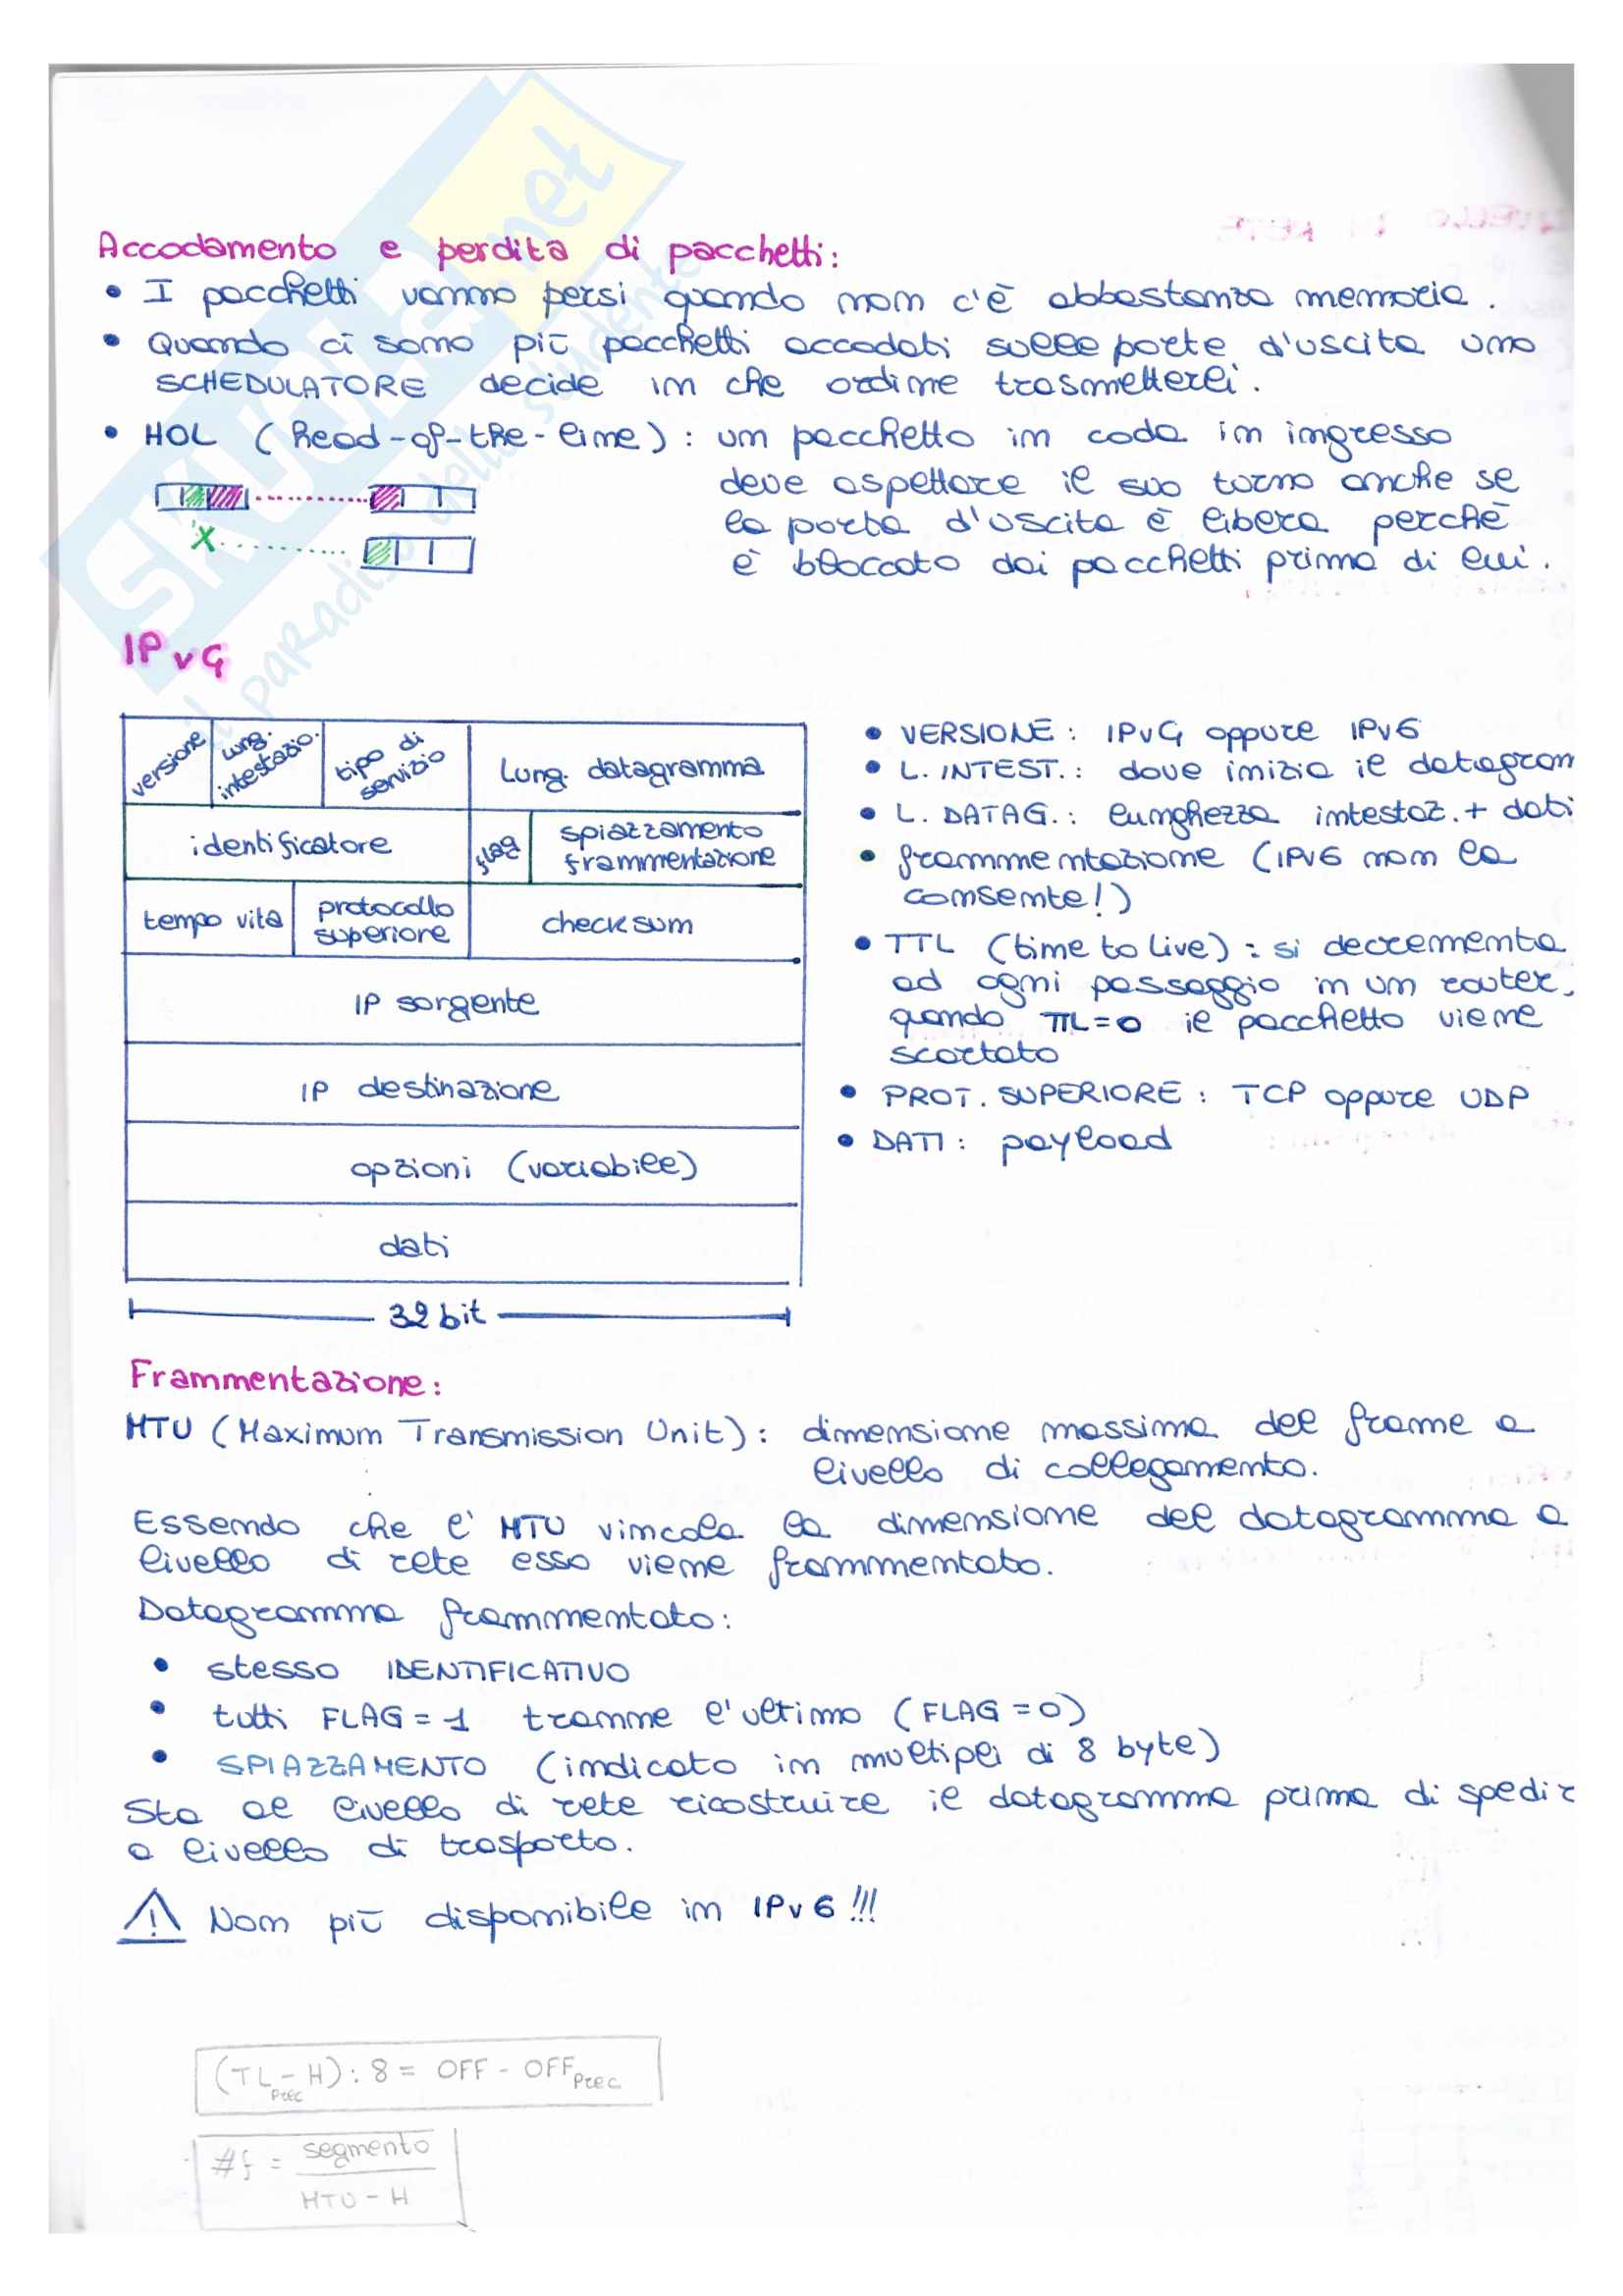 Accodamento e perdita di pacchetti:
• I pacchetti vanno persi quando non c'è abbastanza memoria.
• Quando ci sono più pacchetti accodati sulle porte d'uscita uno
SCHEDULATORE decide in che ordine trasmetterli.
• HOL (head-of-the-line): un pacchetto in coda in ingresso
deve aspettare il suo turno anche se
la porta d'uscita è libera perchè
è bloccato dai pacchetti prima di lui.
X
IPv4
versione
lung. intestazio.
tipo di servizio
lung. datagramma
identificatore
flag
spiazzamento
frammentazione
tempo vita
protocollo
superiore
checksum
IP sorgente
IP destinazione
opzioni (variabile)
dati
32 bit
• VERSIONE: IPv4 oppure IPv6
• L. INTEST.: dove inizia il datagram
• L. DATAG.: lunghezza intestaz. + dati
• frammentazione (IPv6 non la
consente!)
• TTL (time to live): si decrementa
ad ogni passaggio in un router,
quando TTL=0 il pacchetto viene
scartato
• PROT. SUPERIORE: TCP oppure UDP
• DATI: payload
Frammentazione:
MTU (Maximum Transmission Unit): dimensione massima del frame a
livello di collegamento.
Essendo che l'MTU vincola la dimensione del datagramma a
livello di rete esso viene frammentato.
Datagramma frammentato:
• stesso IDENTIFICATIVO
• tutti FLAG=1 tranne l'ultimo (FLAG=0)
• SPIAZZAMENTO (indicato in multipli di 8 byte)
Sta al livello di rete ricostruire il datagramma prima di spedir
a livello di trasporto.
! Non più disponibile in IPv6!!!
(TLprec - H): 8 = OFF - OFFprec
#f = segmento
MTU - H
SKUOLA.net
il paradiso dello studente